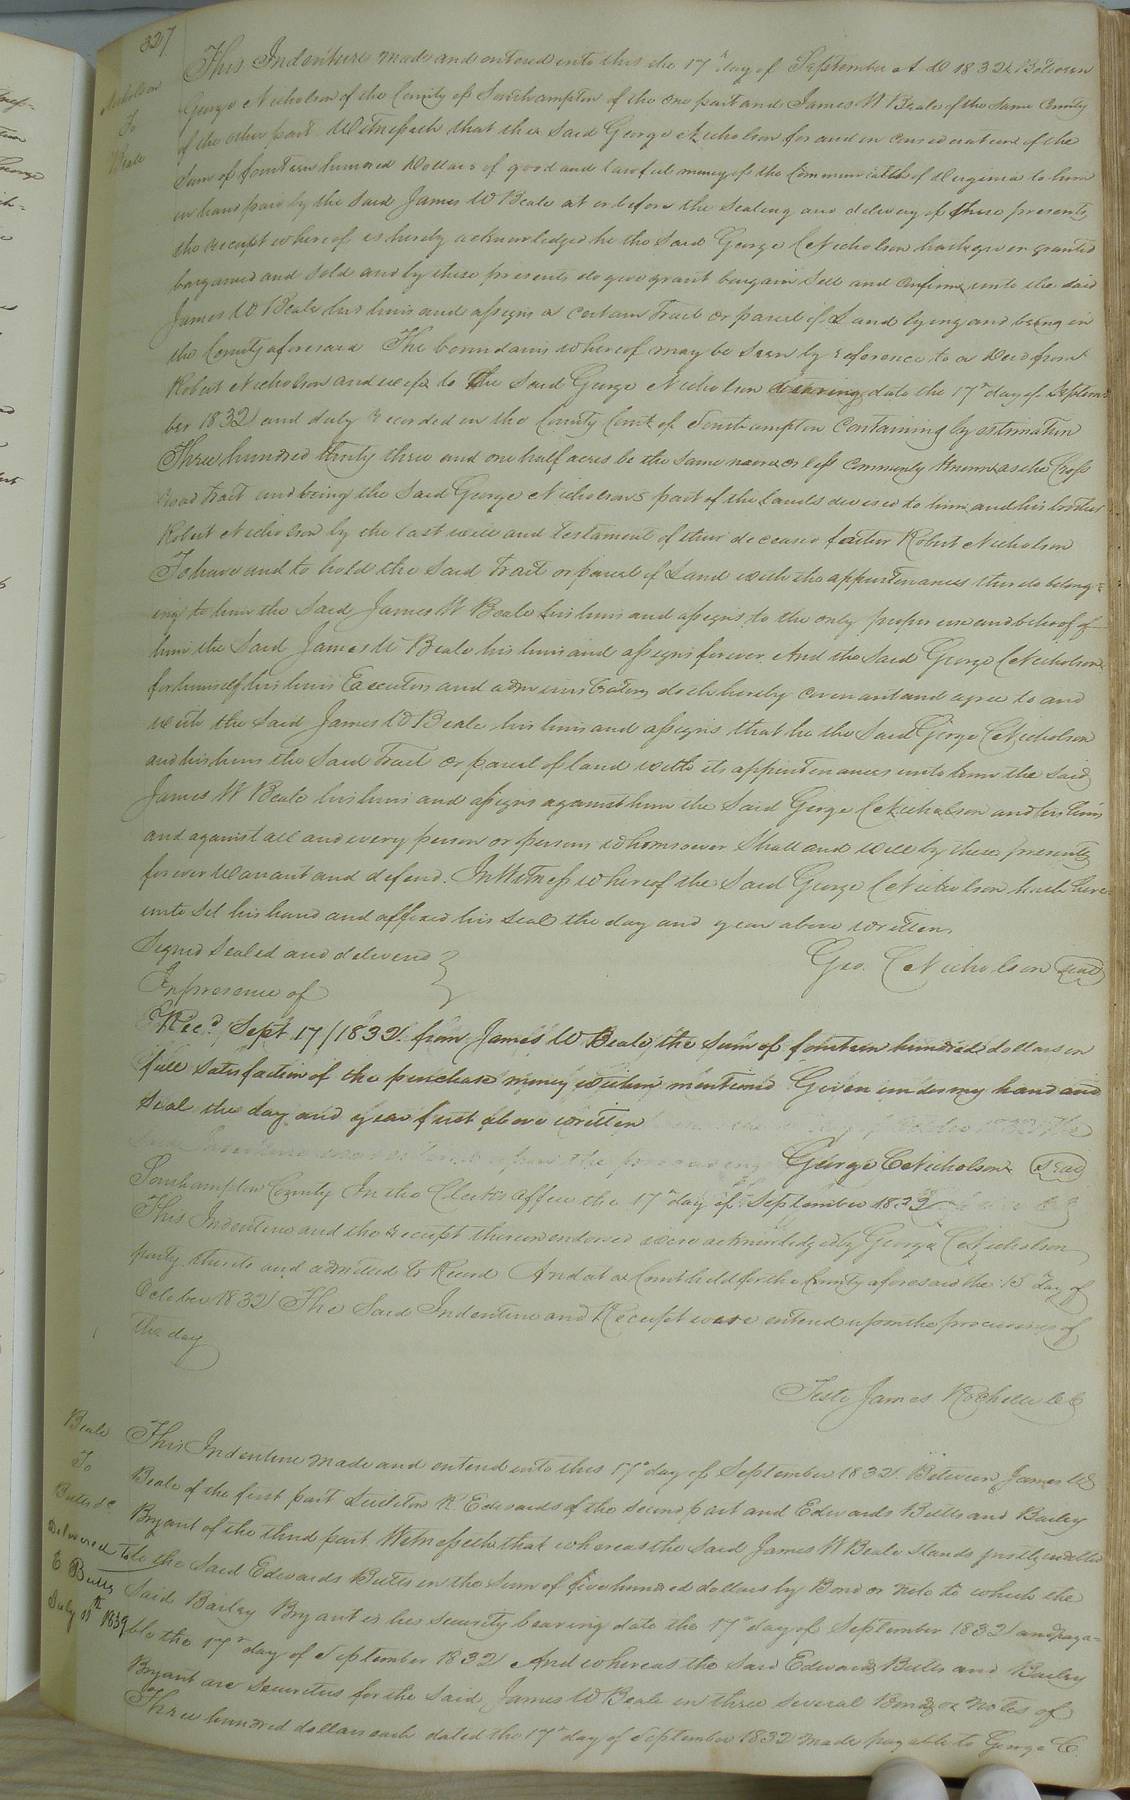 327
Nicholson
To
Beale
This Indenture made and entered into this the 17th day of September A D 1832 Between
George Nicholson of the County of Southampton of the one part and James W Beale of the Same County
of the other part Witnesseth that the Said George Nicholson for and in consideration of the
Sum of fourteen hundred Dollars of good and lawful money of the Commonwealth of Virginia to him
in hand paid by the Said James W Beale at or before the Sealing and delivery of these presents
the receipt whereof is hereby acknowledged he the Said George C Nicholson hath given granted
bargained and Sold and by these presents do give grant bargain Sell and Confirm unto the Said
James W Beale his heirs and assigns a certain Tract or parcel of Land lying and being in
the County aforesaid The boundaries whereof may be Seen by reference to a Deed from
Robert Nicholson and wife to the Said George Nicholson bearing date the 17th day of Septem
ber 1832 and duly recorded in the County Court of Southampton Containing by estimation
Three hundred thirty three and one half acres be the Same more or less Commonly Known as the Cross
road tract and being the Said George Nicholsons part of the Lands devised to him and his brother
Robert Nicholson by the last will and Testament of their deceased father Robert Nicholson
To have and to hold the Said Tract or parcel of Land with the appurtenances thereto belong=
ing to him the Said James W Beale his heirs and assigns to the only proper use and behoof of
him the Said James W Beale his heirs and assigns forever And the Said George C Nicholson
for himself his heirs Executors and administrators doth hereby covenant and agree to and
with the Said James W Beale his heirs and assigns that he the Said George C Nicholson
and his heirs the Said Tract or parcel of land with its appurtenances unto him the Said
James W Beale his heirs and assigns against him the Said George C Nicholson and his heirs
and against all and every person or persons whomsoever Shall and Will by these presents
forever Warrant and defend. In Witness whereof the Said George C Nicholson hath here
unto Set his hand and affixed his Seal the day and year above written
Signed Sealed and delivered }
In presence of
Geo. C Nicholson Seal
Recd Sept 17/1832 from James W Beale the Sum of fourteen hundred dollars in
full Satisfaction of the purchase money within mentioned Given under my hand and
Seal the day and year first above written
George C Nicholson Seal
Southampton County In the Clerks office the 17th day of September 1832
This Indenture and the receipt thereon endorsed were acknowledged by George C Nicholson
party thereto and admitted to Record And at a Court held for the County aforesaid the 15 day of
October 1832 The Said Indenture and Receipt were entered upon the proceedings of
the day
Teste James Rochelle CC
Beale
To
Butts &c
Delivered to
E Butts
July 11th 1839
This Indenture made and entered into this 17th day of September 1832 Between James W
Beale of the first part R Edwards of the Second part and Edwards Butts and Bailey
Bryant of the third part Witnesseth that whereas the Said James W Beale Stands justly indebted
to the Said Edwards Butts in the Sum of five hundred dollars by Bond or note to which the
Said Bailey Bryant is his Security bearing date the 17th day of September 1832 and paya=
ble the 17th day of September 1832 And whereas the Said Edwards Butts and Bailey
Bryant are Securities for the Said James W Beale in three Several Bonds or notes of
Three hundred dollars each dated the 17th day of September 1832 made payable to George C